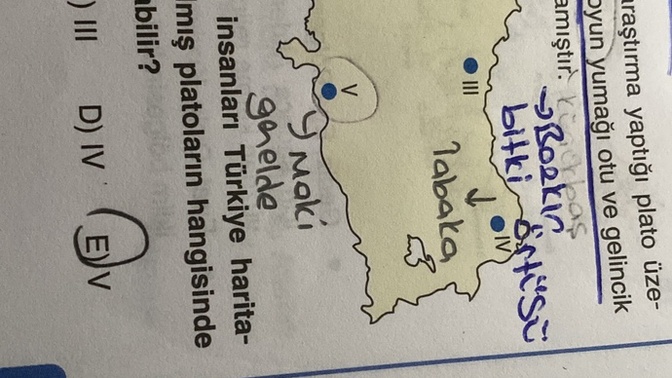 araştırma yaptığı plato üze-
oyun yumağı otu ve gelincik
amıştır.
→ Bozkır
bitki örtüsü
III
Tabaka
IV
V
maki
genelde
insanları Türkiye harita-
mış platoların hangisinde
abilir?
) III D) IV E) V